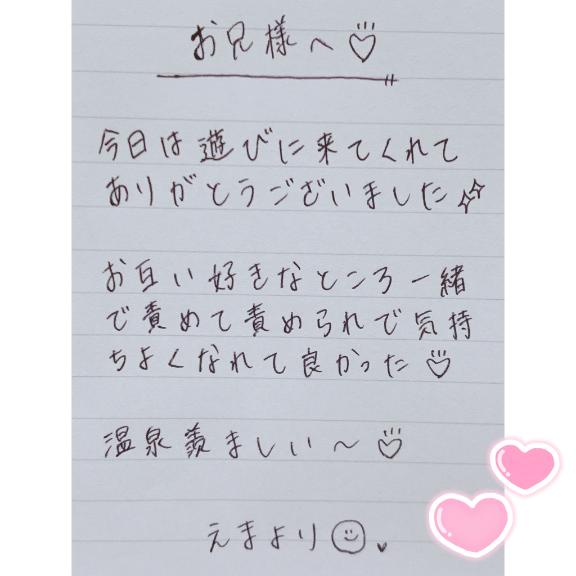 お兄様へ♡
今日は遊びに来てくれて
ありがとうございました✨
お互い好きなところ一緒
で責めて責められで気持
ちよくなれて良かった♡
温泉羨ましい〜♡
えまより☺♥